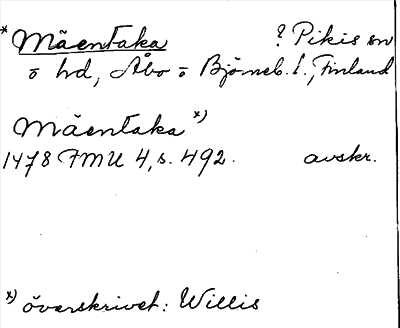 * Mäentaka ? Pikis sn
o hd, Åbo o Björneb. l., Finland
Mäentaka *)
1478 FMU 4, s. 492. avskr.
*) överskrivet: Willis